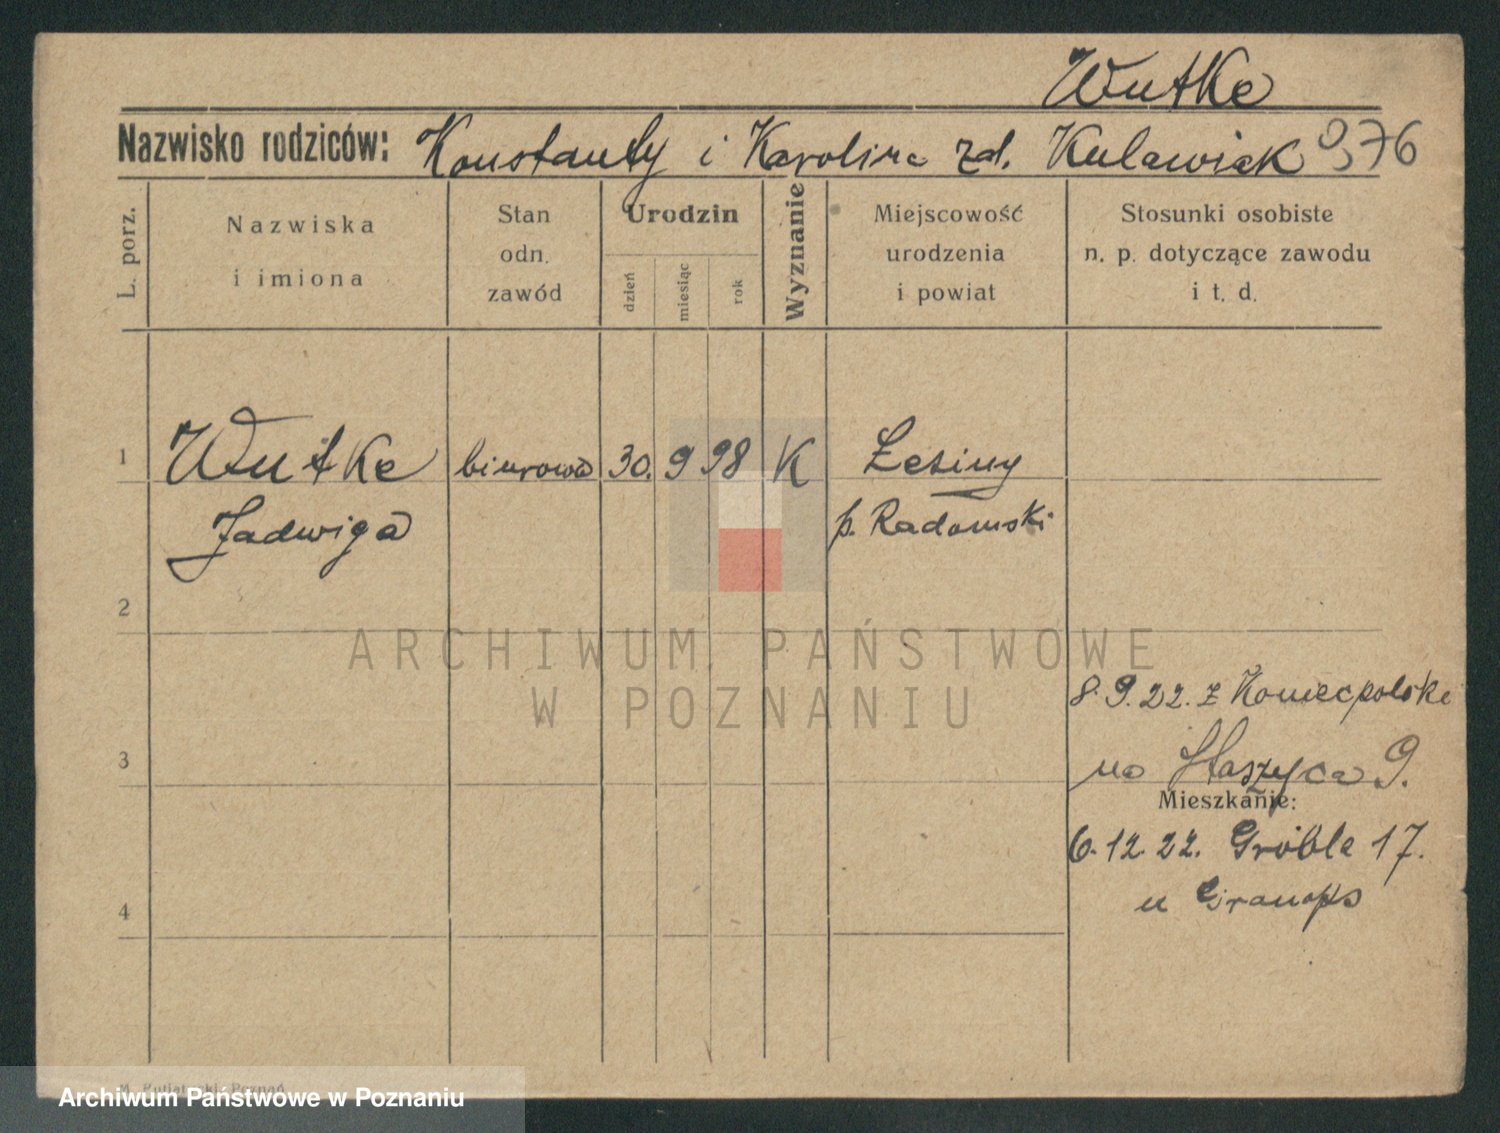 Wutke
Nazwisko rodziców: Konstanty i Karolina zd. Kulawiak 976
L. porz.
Nazwiska
i imiona
Stan
odn.
zawód
Urodzin
dzień
miesiąc
rok
Wyznanie
Miejscowość
urodzenia
i powiat
Stosunki osobiste
n. p. dotyczące zawodu
i t. d.
1 Wutke biurowa 30. 9 98 K
Jadwiga p. Radomski
2
ARCHIWUM PAŃSTWOWE
W POZNANIU
8.9.22. z Koniecpolski
3 na Staszyca 9.
Mieszkanie:
6.12.22. Grobla 17.
u
4
Poznań
Archiwum Państwowe w Poznaniu